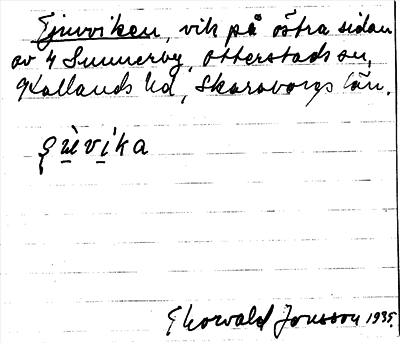 Tjuvviken, vik på östra sidan
av 4 Sunnerby, Otterstads sn,
Kållands hd, Skaraborgs län.
çùvı̀ka
Thorvald Jonsson 1935.